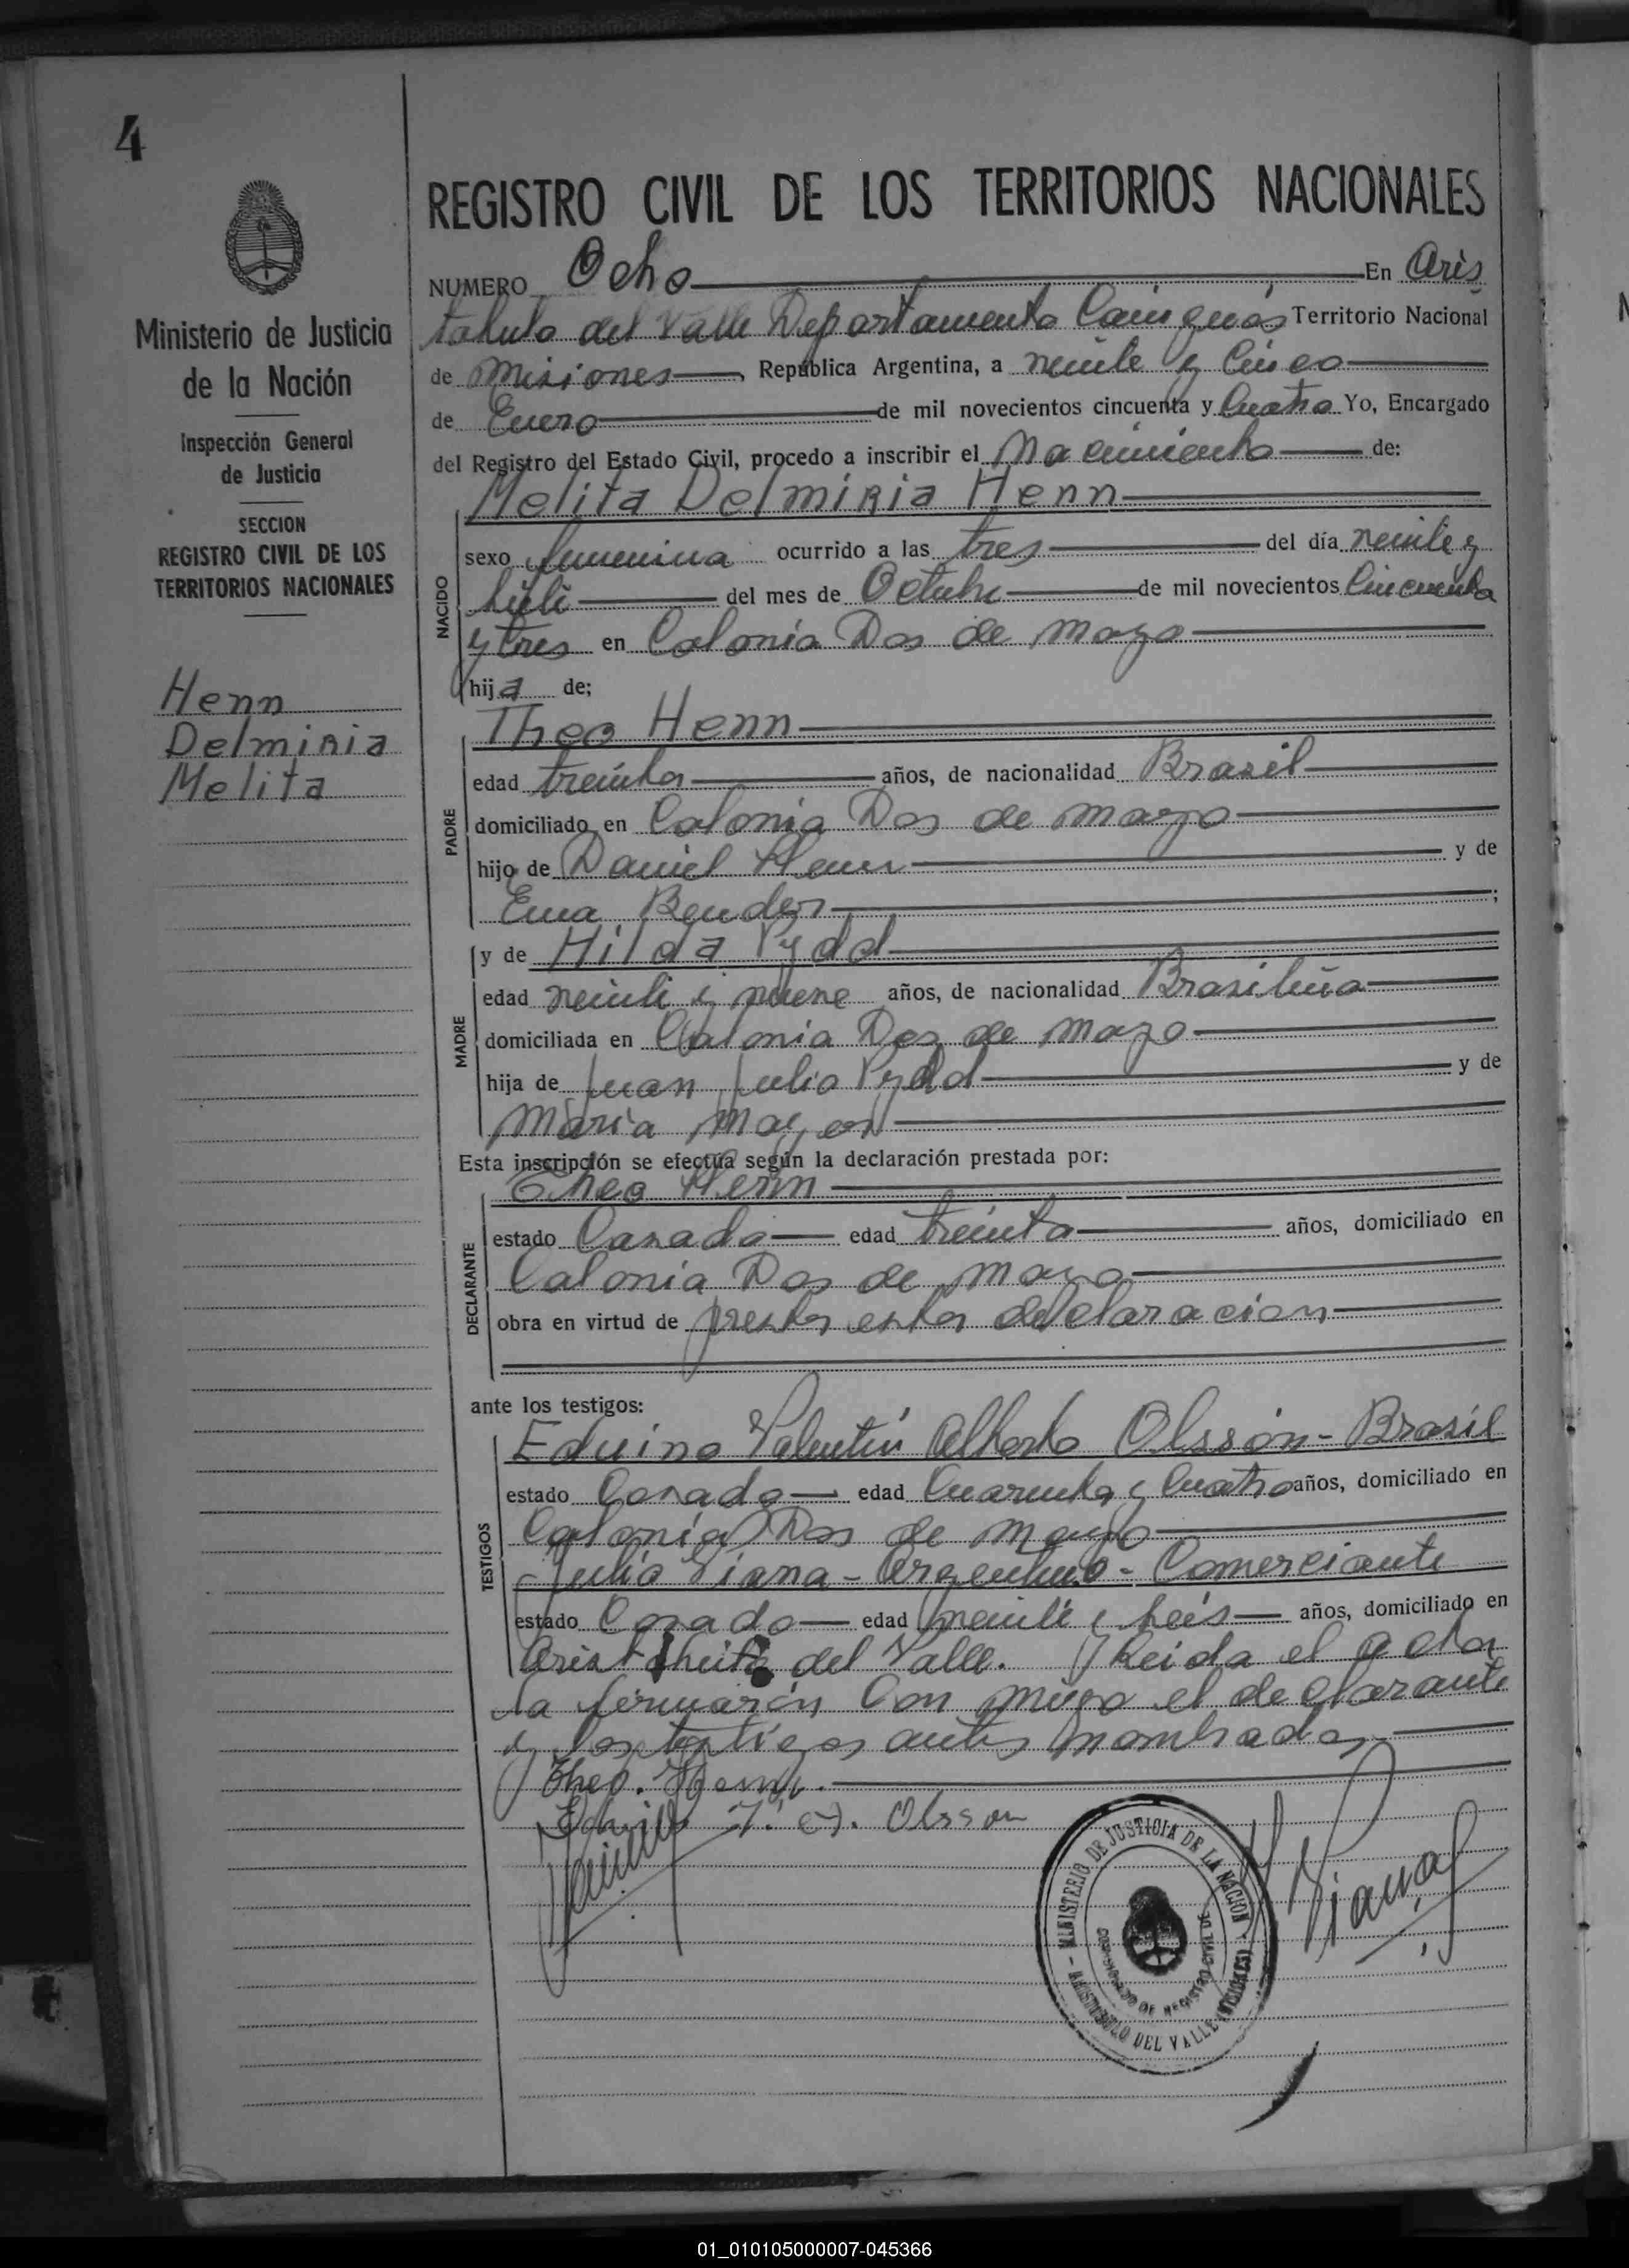 4
Ministerio de Justicia
de la Nación
Inspección General
de Justicia
SECCION
REGISTRO CIVIL DE LOS
TERRITORIOS NACIONALES
Henn
Delmiria
Melita
REGISTRO CIVIL DE LOS TERRITORIOS NACIONALES
NUMERO Ocho En Aris
tobulo del Valle Departamento Cainguás Territorio Nacional
de Misiones República Argentina, a veinte y Cinco
de Enero de mil novecientos cincuenta y Cuatro Yo, Encargado
del Registro del Estado Civil, procedo a inscribir el Nacimiento de:
Melita Delmiria Henn
NACIDO
sexo femenina ocurrido a las tres del día veinte y
siete del mes de Octubre de mil novecientos Cincuenta
y tres en Colonia Dos de Mayo
hija de;
PADRE
Theo Henn
edad treinta años, de nacionalidad Brasil
domiciliado en Colonia Dos de Mayo
hijo de Daniel Henn y de
Ema Bender ;
MADRE
y de Hilda Pydd
edad veinte y nueve años, de nacionalidad Brasileña
domiciliada en Colonia Dos de Mayo
hija de Juan Julio Pydd y de
Maria Mayer
Esta inscripción se efectúa según la declaración prestada por:
DECLARANTE
Theo Henn
estado Casado edad treinta años, domiciliado en
Colonia Dos de Mayo
obra en virtud de prestar esta declaracion
ante los testigos:
TESTIGOS
Eduino Valentin Alberto Olsson - Brasil
estado Casado edad Cuarenta y Cuatro años, domiciliado en
Colonia Dos de Mayo
Julio Viana - Argentino - Comerciante
estado Casado edad veinte y seis años, domiciliado en
del Valle. Leida el acta
la firmarón Con migo el declarante
y los testigos antes nombrados
Theo. Henn.
V. A. Olsson
Viana
MINISTERIO DE JUSTICIA DE LA NACION
ARISTOBULO DEL VALLE (MISIONES)
DE REGISTRO CIVIL DE
01_010105000007-045366